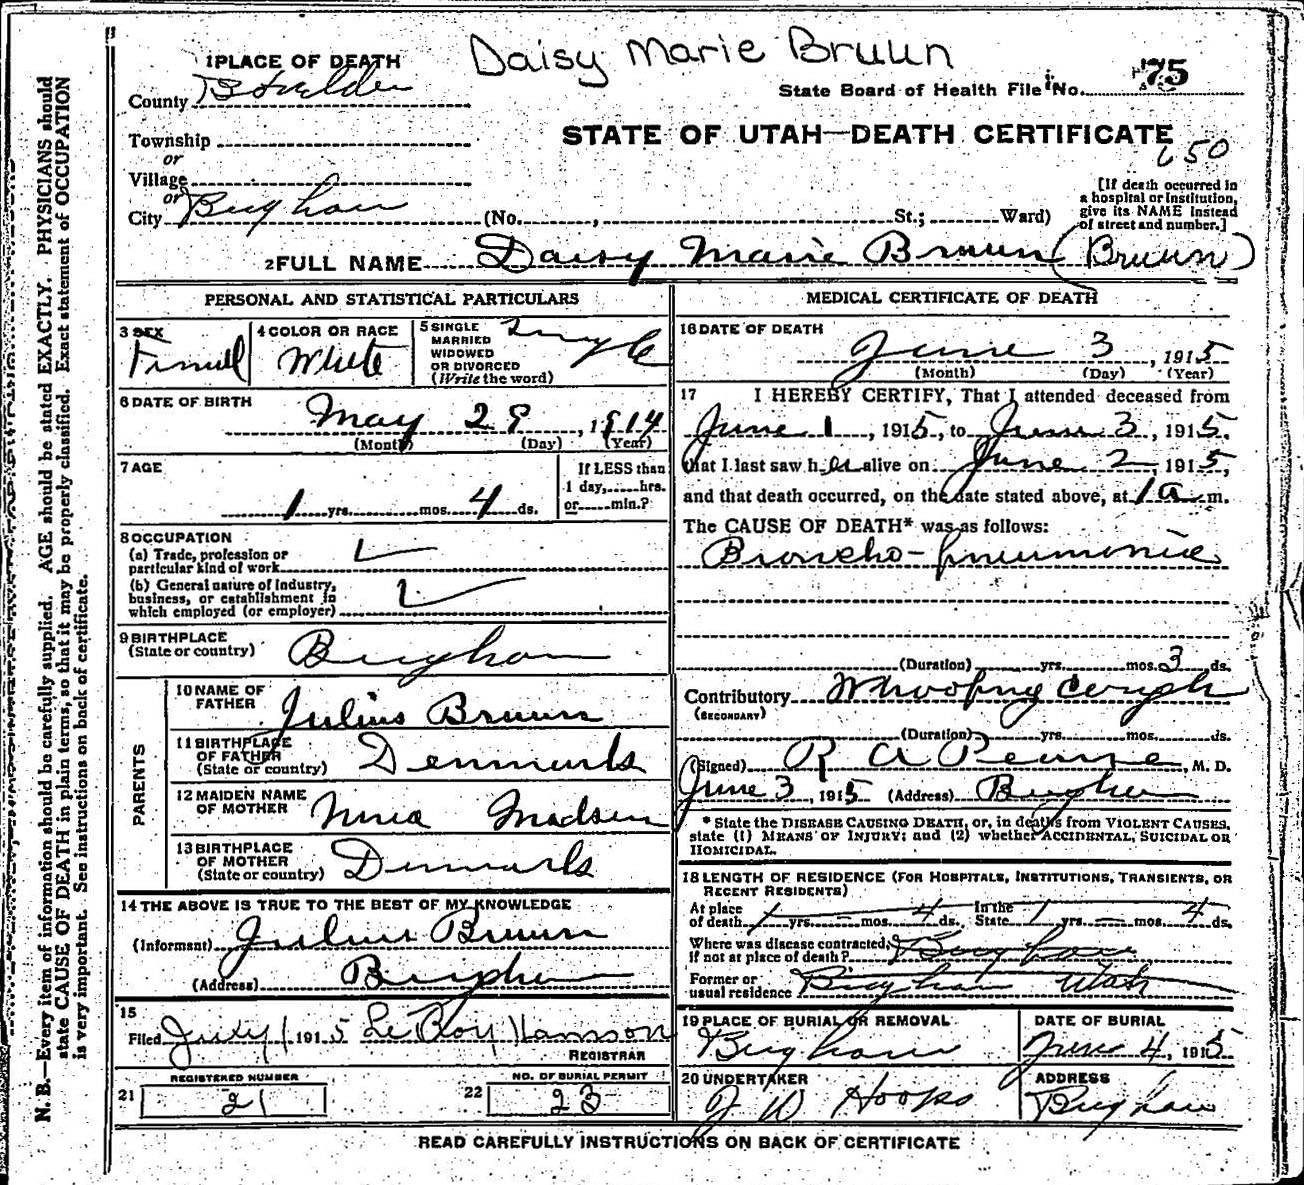 Daisy Marie Bruun
1 PLACE OF DEATH
County Boxelder
State Board of Health File No. 75
Township
STATE OF UTAH—DEATH CERTIFICATE
or
Village
or
City Brigham (No. , St.; Ward)
[If death occurred in
a hospital or institution,
give its NAME instead
of street and number.]
2 FULL NAME Daisy Marie Bruun (Bruun)
PERSONAL AND STATISTICAL PARTICULARS
3 SEX
Femal
4 COLOR OR RACE
White
5 SINGLE
MARRIED
WIDOWED
OR DIVORCED
(Write the word)
Single
6 DATE OF BIRTH
May 29, 1914
(Month) (Day) (Year)
7 AGE
1 yrs. mos. 4 ds.
If LESS than
1 day, hrs.
or min.?
8 OCCUPATION
(a) Trade, profession or
particular kind of work
(b) General nature of industry,
business, or establishment in
which employed (or employer)
9 BIRTHPLACE
(State or country) Brigham
PARENTS
10 NAME OF
FATHER Julius Bruun
11 BIRTHPLACE
OF FATHER
(State or country) Denmark
12 MAIDEN NAME
OF MOTHER Madsen
13 BIRTHPLACE
OF MOTHER
(State or country) Denmark
14 THE ABOVE IS TRUE TO THE BEST OF MY KNOWLEDGE
(Informant) Julius Bruun
(Address) Brigham
15
Filed July 1 1915 Le Roy Hanson
REGISTRAR
REGISTERED NUMBER
21 21
NO. OF BURIAL PERMIT
22 23
MEDICAL CERTIFICATE OF DEATH
16 DATE OF DEATH
June 3, 1915
(Month) (Day) (Year)
17 I HEREBY CERTIFY, That I attended deceased from
June 1, 1915, to June 3, 1915,
that I last saw her alive on June 2, 1915,
and that death occurred, on the date stated above, at 1 a m.
The CAUSE OF DEATH* was as follows:
Broncho-pneumonia
(Duration) yrs. mos. 3 ds.
Contributory Whooping cough
(SECONDARY)
(Duration) yrs. mos. ds.
(Signed) R A Pearse, M. D.
June 3, 1915 (Address) Brigham
* State the DISEASE CAUSING DEATH, or, in deaths from VIOLENT CAUSES,
state (1) MEANS OF INJURY; and (2) whether ACCIDENTAL, SUICIDAL OR
HOMICIDAL.
18 LENGTH OF RESIDENCE (FOR HOSPITALS, INSTITUTIONS, TRANSIENTS, OR
RECENT RESIDENTS)
At place
of death 1 yrs. — mos. 4 ds. In the State 1 yrs. — mos. 4 ds.
Where was disease contracted,
if not at place of death? Brigham
Former or
usual residence Brigham Utah
19 PLACE OF BURIAL OR REMOVAL
Brigham
DATE OF BURIAL
June 4, 1915
20 UNDERTAKER
J W Hoops
ADDRESS
Brigham
READ CAREFULLY INSTRUCTIONS ON BACK OF CERTIFICATE
N. B.—Every item of information should be carefully supplied. AGE should be stated EXACTLY. PHYSICIANS should
state CAUSE OF DEATH in plain terms, so that it may be properly classified. Exact statement of OCCUPATION
is very important. See instructions on back of certificate.